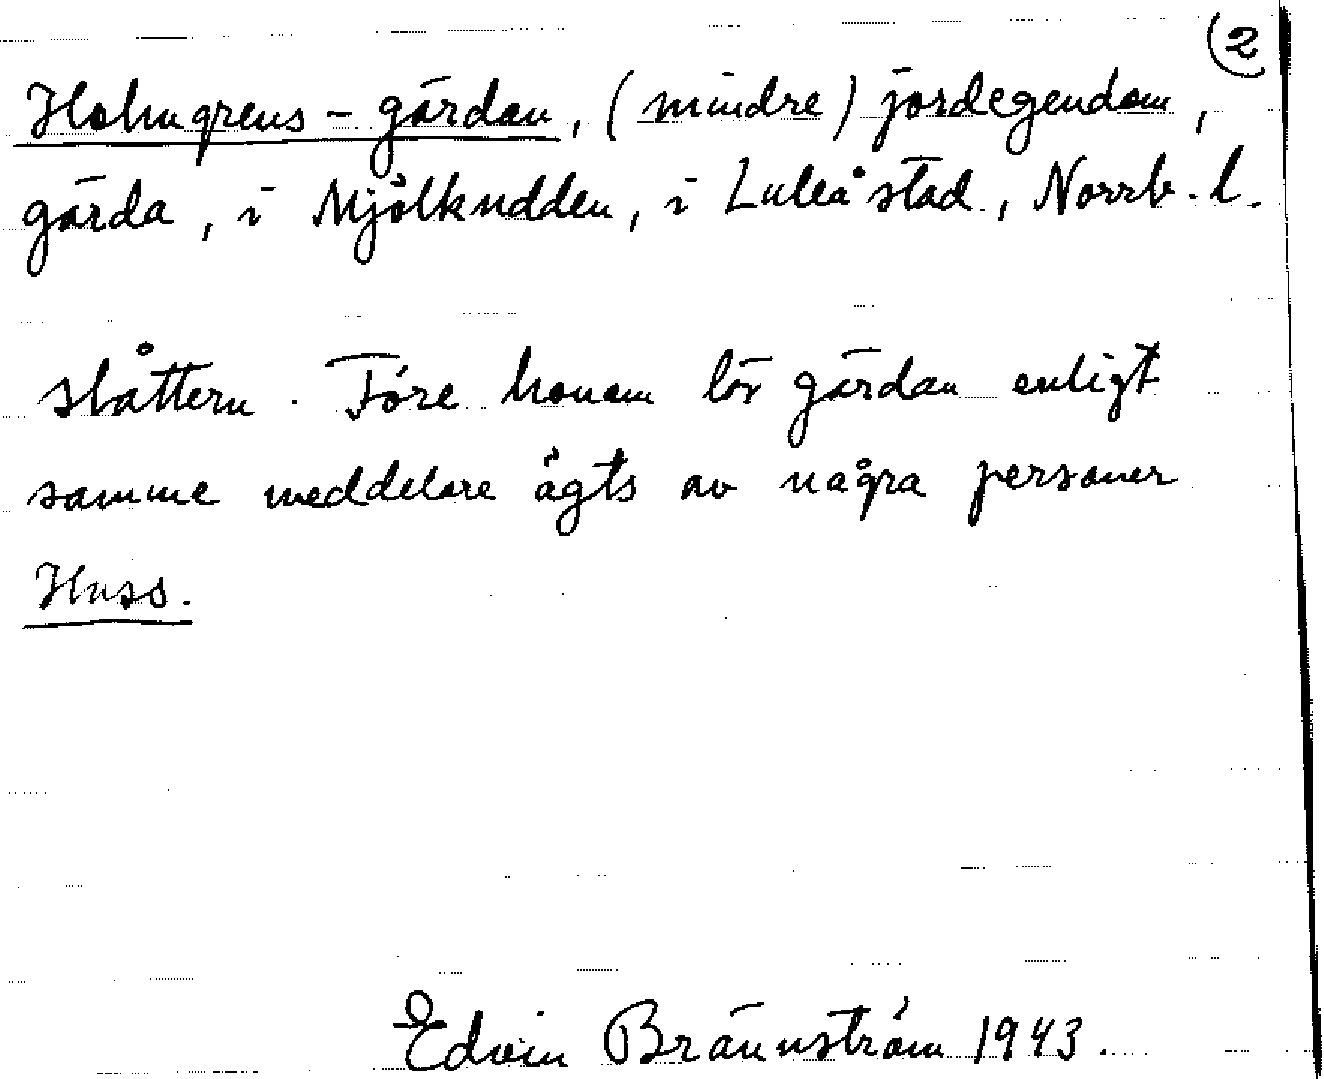 2
Holmgrens-gärdan, (mindre) jordegendom,
gärda, i Mjölkudden, i Luleå stad, Norrb. l.
slåttern. Före honom lär gärdan enligt
samme meddelare ägts av några personer
Huss.
Edvin Brännström 1943.